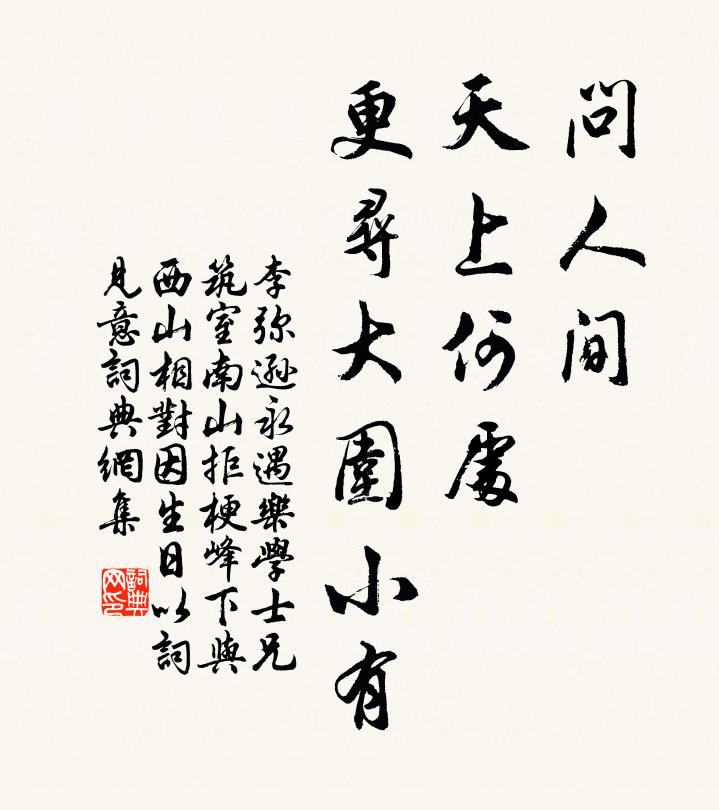 問人间
天上何處
更尋大圍小有
李弥遜永遇樂學士兄
筑室南山拒梗峰下與
西山相對因生日以詞
見意詞典網集
詞典网印